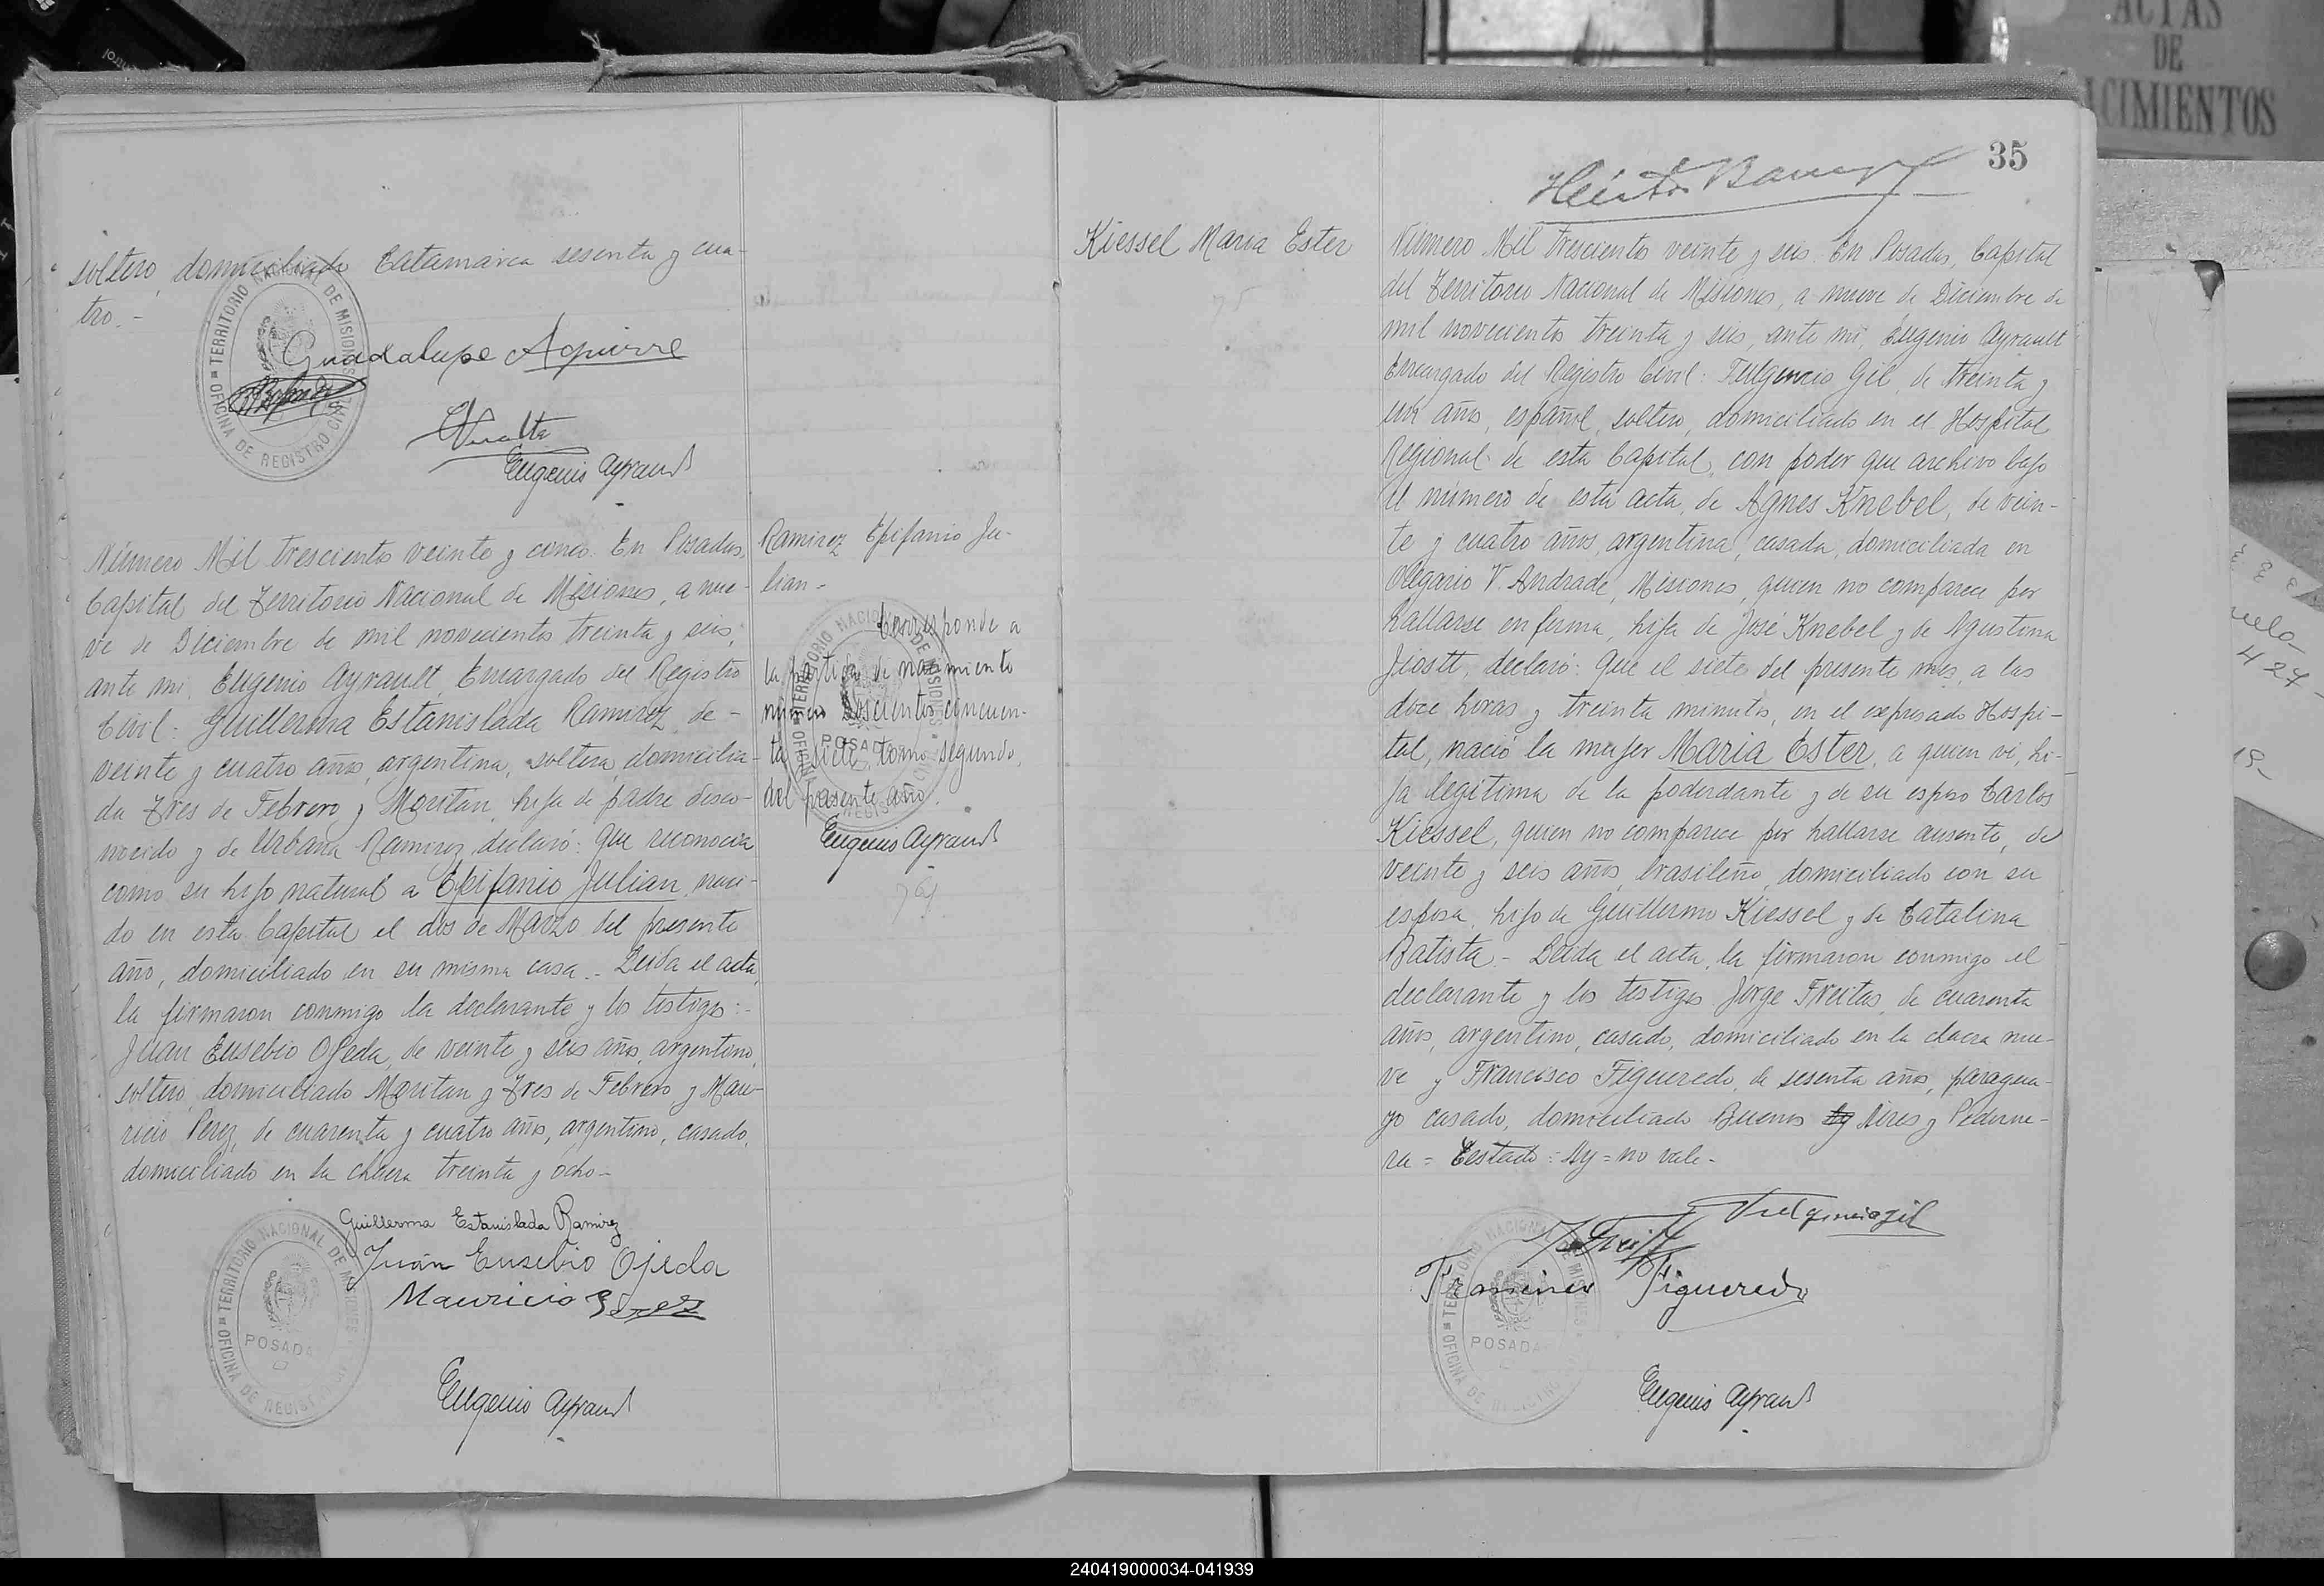 ACTAS
DE
CIMIENTOS
soltero, domiciliado Catamarca sesenta y cua-
tro.-
TERRITORIO NACIONAL DE MISIONES
OFICINA DE REGISTRO CIVIL
Guadalupe Aguirre
Eugenio Ayrault
Número Mil trescientos veinte y cinco. En Posadas,
Capital del Territorio Nacional de Misiones, a nue-
ve de Diciembre de mil novecientos treinta y seis,
ante mi, Eugenio Ayrault, Encargado del Registro
Civil: Guillerma Estanislada Ramirez, de-
veinte y cuatro años, argentina, soltera, domicilia-
da Tres de Febrero y Moritan, hija de padre desco-
nocido y de Urbana Ramirez, declaró: Que reconocia
como su hijo natural a Epifanio Julian, naci-
do en esta Capital el dos de Marzo del presente
año, domiciliado en su misma casa.- Leida el acta,
la firmaron conmigo la declarante y los testigos:-
Juan Eusebio Ojeda, de veinte y seis años, argentino,
soltero, domiciliado Moritan y Tres de Febrero, y Mau-
ricio Perez, de cuarenta y cuatro años, argentino, casado,
domiciliado en la chacra treinta y ocho-
Guillerma Estanislada Ramirez
Juan Eusebio Ojeda
Mauricio Perez
TERRITORIO NACIONAL DE MISIONES
OFICINA DE REGISTRO
POSADAS
Eugenio Ayrault
Ramirez Epifanio Ju-
lian-
Corresponde a
la partida de nacimiento
número doscientos cincuen-
ta y siete, tomo segundo,
del presente año.
Eugenio Ayrault
POSADAS
35
Kiessel Maria Ester
75
Número Mil trescientos veinte y seis. En Posadas, Capital
del Territorio Nacional de Misiones, a nueve de Diciembre de
mil novecientos treinta y seis, ante mi, Eugenio Ayrault
Encargado del Registro Civil: Fulgencio Gil, de treinta y
un años, español, soltero, domiciliado en el Hospital
Regional de esta Capital, con poder que archivo bajo
el número de esta acta, de Agnes Knebel, de vein-
te y cuatro años, argentina, casada, domiciliada en
Olegario V. Andrade, Misiones, quien no comparece por
hallarse enferma, hija de José Knebel y de Agustina
Jiostt, declaró: Que el siete del presente mes, a las
doce horas y treinta minutos, en el expresado Hospi-
tal, nació la mujer Maria Ester, a quien vi, hi-
ja legitima de la poderdante y de su esposo Carlos
Kiessel, quien no comparece por hallarse ausente, de
veinte y seis años, brasileño, domiciliado con su
esposa, hijo de Guillermo Kiessel y de Catalina
Batista.- Leida el acta, la firmaron conmigo el
declarante y los testigos Jorge Freitas, de cuarenta
años, argentino, casado, domiciliado en la chacra nue-
ve y Francisco Figueredo, de sesenta años, paragua-
yo casado, domiciliado Buenos Ay Aires y Pederne-
ra= Testado: Ay= no vale-
Fulgencio Gil
Francisco Figueredo
TERRITORIO NACIONAL DE MISIONES
OFICINA DE REGISTRO
POSADAS
Eugenio Ayrault
427
19-
240419000034-041939